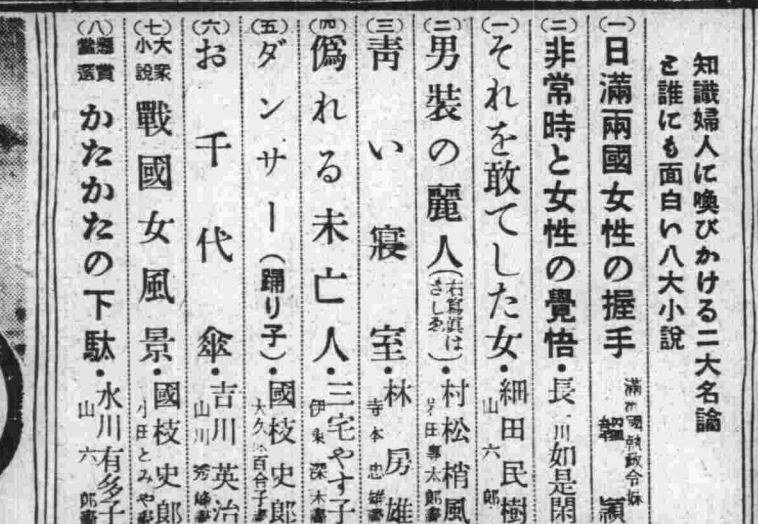 知識婦人に喚びかける二大名論
と誰にも面白い八大小説
(一)日滿兩國女性の握手
滿洲國執政令妹
韞頴
(二)非常時と女性の覺悟・長谷川如是閑
(一)それを敢てした女・細田民樹
山六郎畫
(二)男裝の麗人(右寫眞はさしゑ)・村松梢風
岩田專太郎畫
(三)靑い寢室・林房雄
寺本忠雄畫
(四)僞れる未亡人・三宅やす子
伊東深水畫
(五)ダンサー(踊り子)・國枝史郎
(六)お千代傘・吉川英治
山川秀峰畫
(七)大衆小說 戰國女風景・國枝史郎
小田とみや畫
(八)懸賞當選 かたかたの下駄・水川有多子
山六郎畫